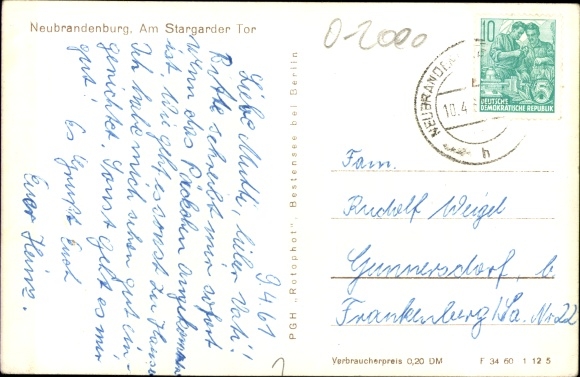 Neubrandenburg, Am Stargarder Tor
0-2000
9.4.61
Liebe Mutti, lieber Vati!
Bitte schreibt mir sofort
wenn das Päckchen angekommen
ist. Wie geht es sonst zu Hause
Ich habe mich schon gut ein,
gerichtet. Sonst geht es mir
gut!
Es grüßt Euch
Euer Heinz.
PGH „Rotophot" Bestensee bei Berlin
10
DEUTSCHE
DEMOKRATISCHE REPUBLIK
5
NEUBRANDEN
10.4.
h
Fam.
Rudolf Weigel
Gunnersdorf, b.
Frankenberg/Sa. Nr 22
Verbraucherpreis 0,20 DM
F 34 60 1 12 5